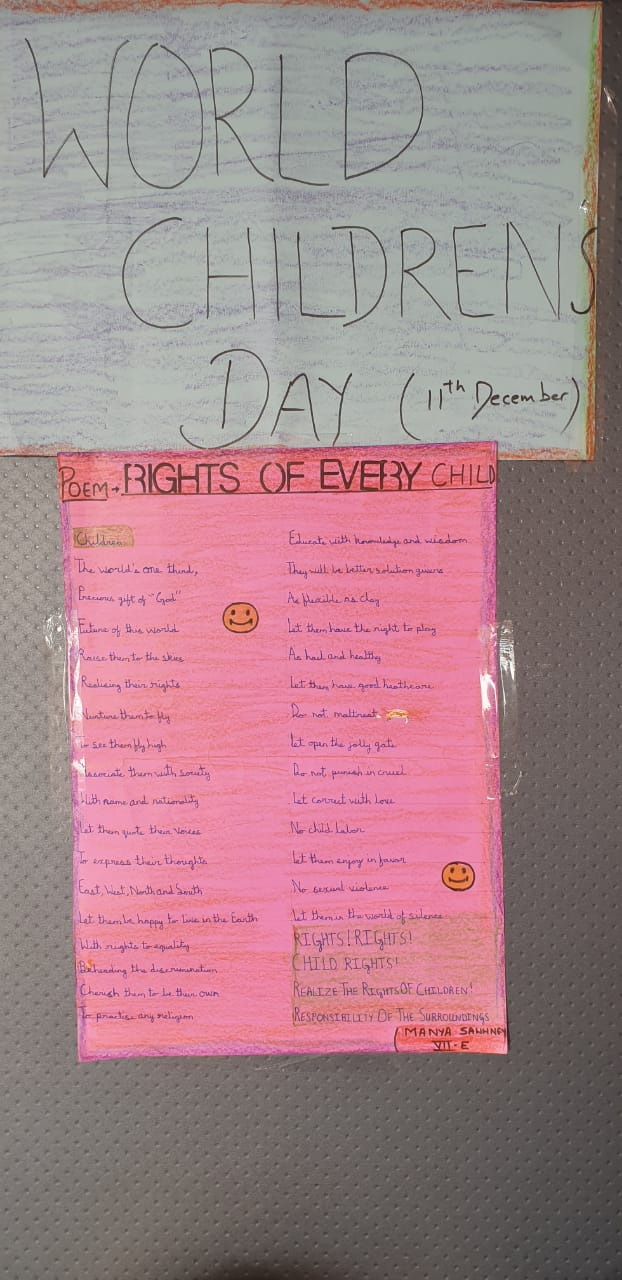 WORLD
CHILDRENS
DAY (11th December)
POEM→ RIGHTS OF EVERY CHILD
Children
The world's one third,
Precious gift of "God"
Future of this world
Raise them to the skies
Realising their rights
Nurture them to fly
To see them fly high
Associate them with society
With name and nationality
Let them quote their voices
To express their thoughts
East, West, North and South
Let them be happy to live in the Earth
With rights to equality
Beheading the discrimination
Cherish them to be their own
To practise any religion
Educate with knowledge and wisdom
They will be better solution givers
As flexible as clay
Let them have the right to play
As hail and healthy
Let them have good heathcare
Do not maltreat
Let open the jolly gate
Do not punish in cruel
Let correct with love
No child Labor
Let them enjoy in favor
No sexual violence
Let them in the world of silence
RIGHTS! RIGHTS!
CHILD RIGHTS!
REALIZE THE RIGHTS OF CHILDREN!
RESPONSIBILITY OF THE SURROUNDINGS
MANYA SAWHNEY
VII-E